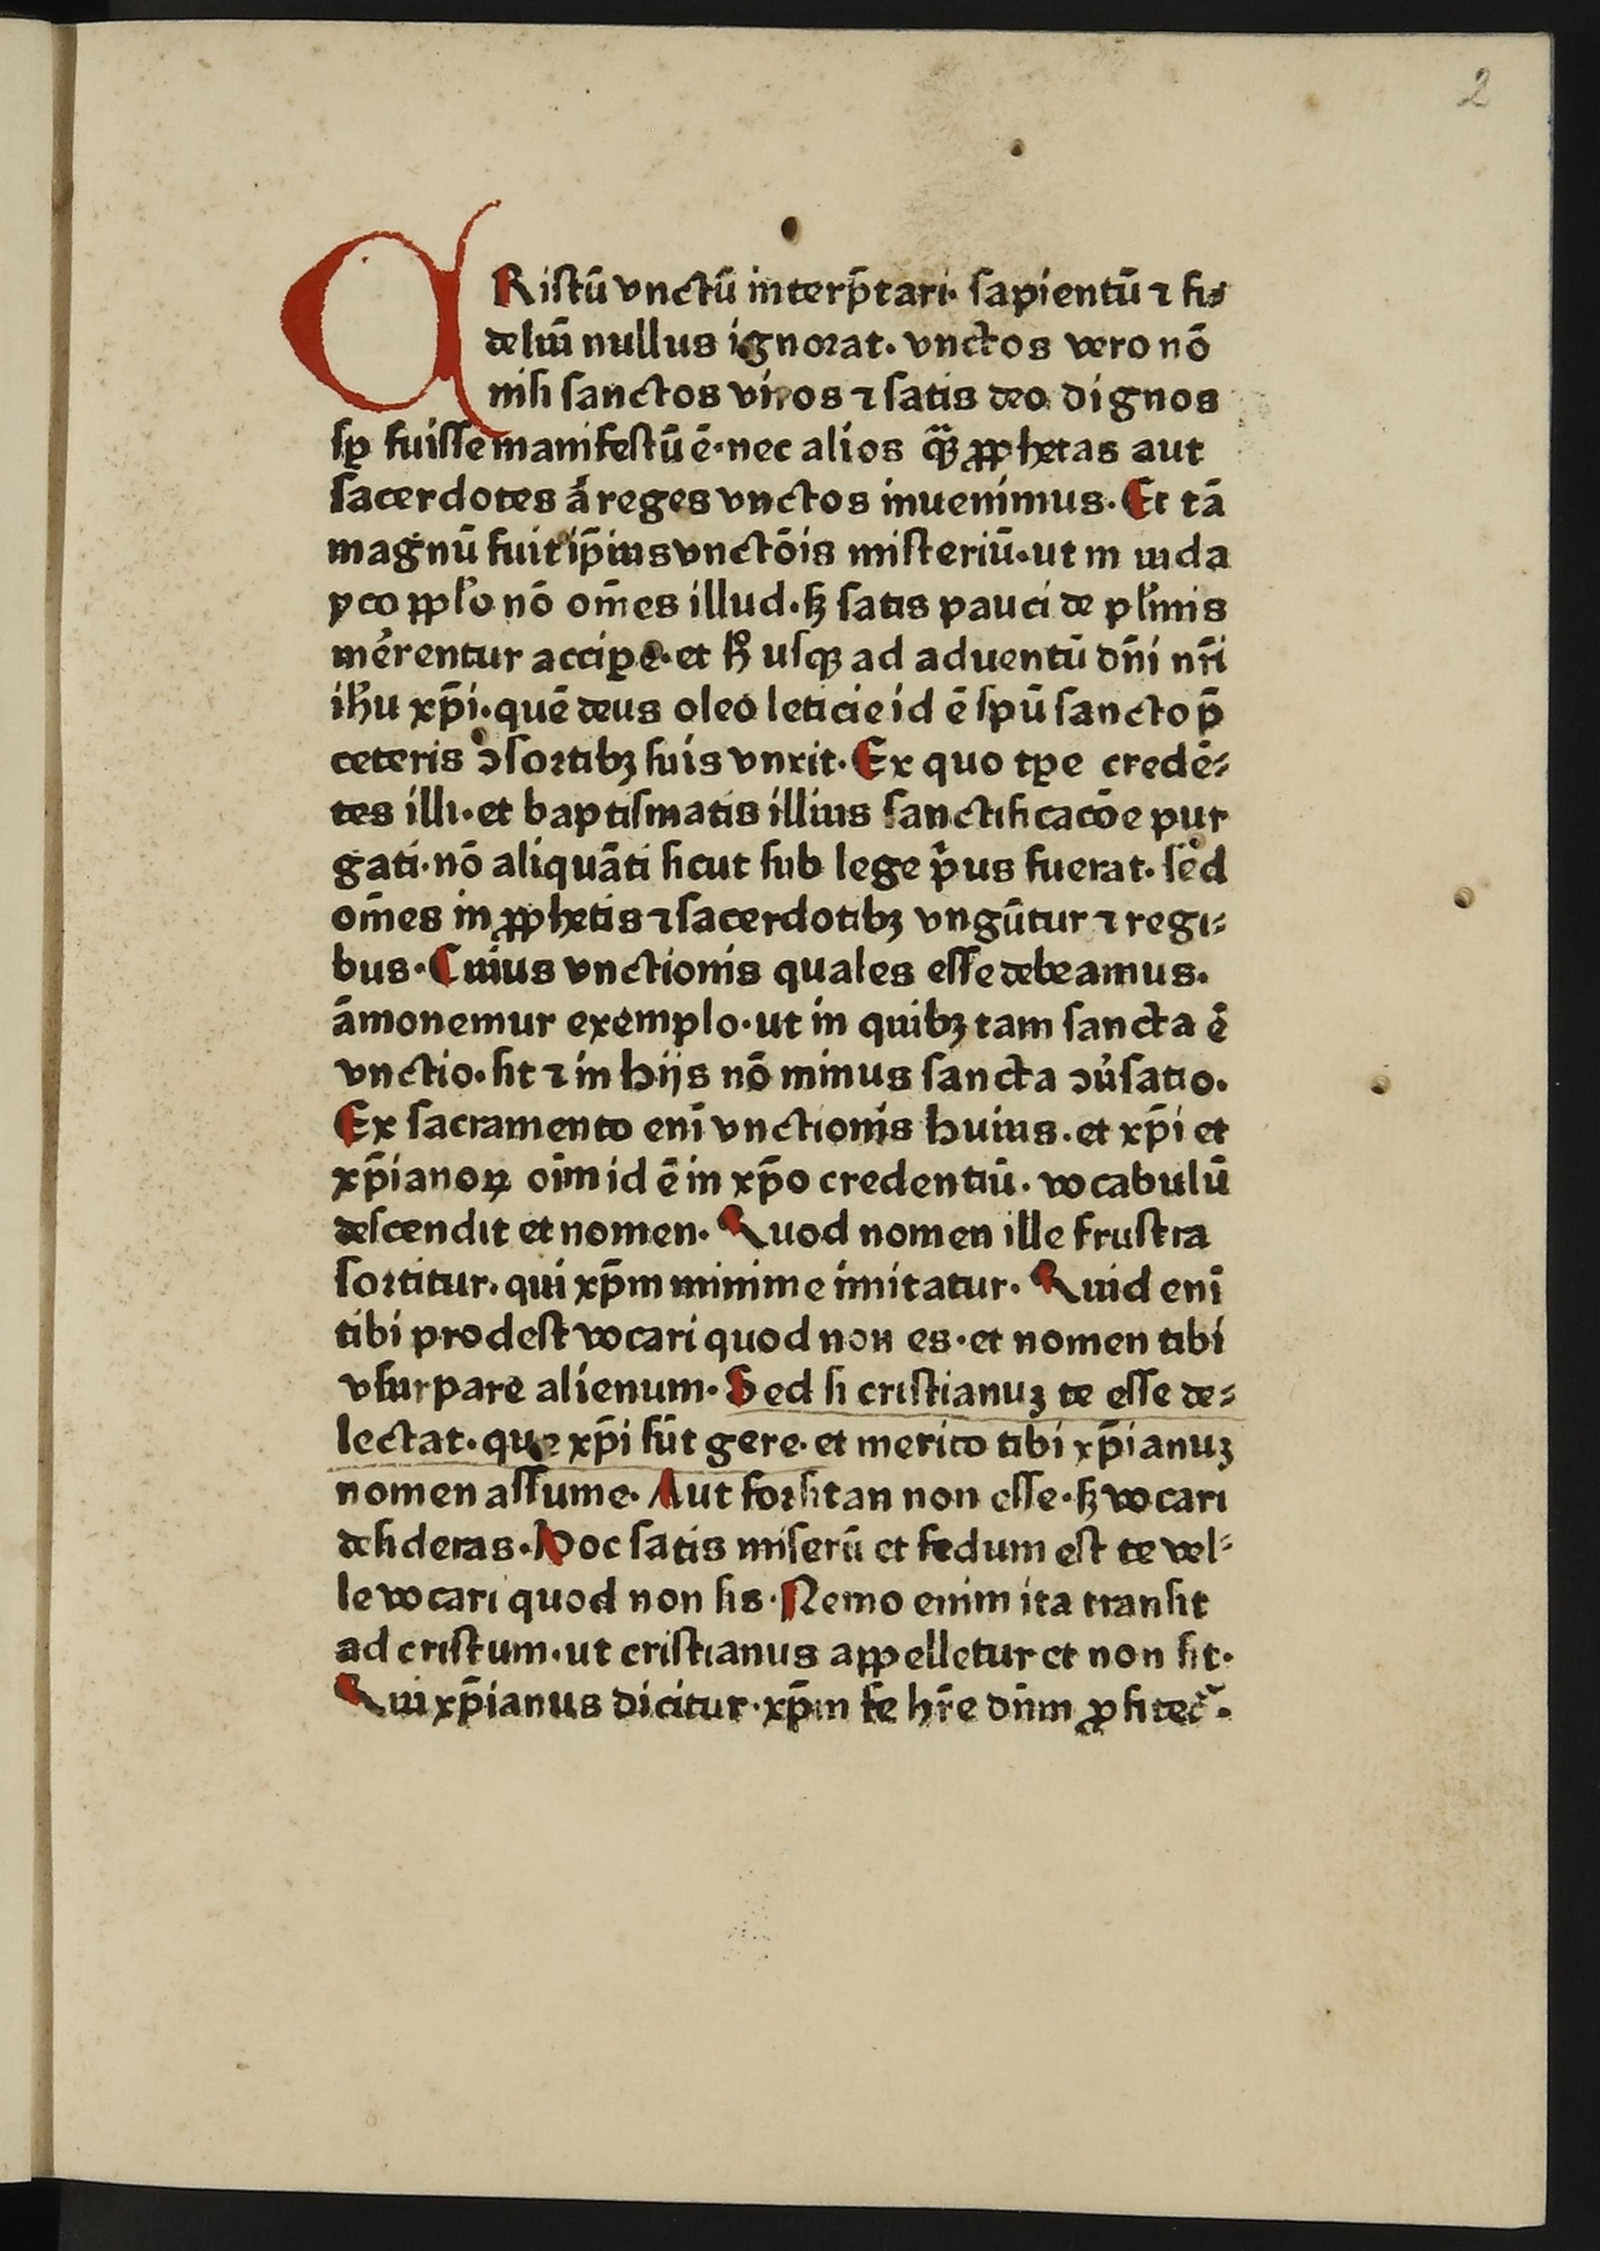 2
CRistū vnctū interp̄tari· sapientū ⁊ fi⸗
deliū nullus ignorat· vnctos vero nō
nisi sanctos viros ⁊ satis deo dignos
sꝑ fuisse manifestū ē·nec alios qꝫ̈ ꝓphetas aut
sacerdotes āreges vnctos inuenimus· Et tā
magnū fuit ip̄ius vnctōis misteriū·ut in iuda
yco ppl̓o nō om̄es illud·sꝫ satis pauci de pl̓imis
mērentur accipe·et h̊ usqꝫ ad aduentū dn̄i nr̄i
ih̄u xp̄i·quē deus oleo leticie id ē spū sancto p̄
ceteris ↄsortibꝫ suis vnxit· Ex quo tꝑe credē⸗
tes illi·et baptismatis illius sanctificacōe pur
gati·nō aliquāti sicut sub lege p̓us fuerat· sed
om̄es in ꝓphetis ⁊ sacerdotibꝫ vngūtur ⁊ regi⸗
bus· Cuius vnctionis quales esse debeamus·
āmonemur exemplo·ut in quibꝫ tam sancta ē
vnctio·sit ⁊ in hijs nō minus sancta ↄu̓satio·
Ex sacramento enī vnctionis huius·et xp̄i et
xp̄ianoꝝ oīm id ē in xp̄o credentiū· vocabulū
descendit et nomen· Quod nomen ille frustra
sortitur·qui xp̄m minime imitatur· Quid enī
tibi prodest vocari quod non es·et nomen tibi
vsurpare alienum· Sed si cristianuꝫ te esse de⸗
lectat·que xp̄i sūt gere·et merito tibi xp̄ianuꝫ
nomen assume· Aut forsitan non esse·sꝫ vocari
desideras· Hoc satis miserū et fedum est te vel⸗
le vocari quod non sis· Nemo enim ita transit
ad cristum·ut cristianus appelletur et non sit·
Qui xp̄ianus dicitur·xp̄m se hr̄e dn̄m ꝓfitet᷑·